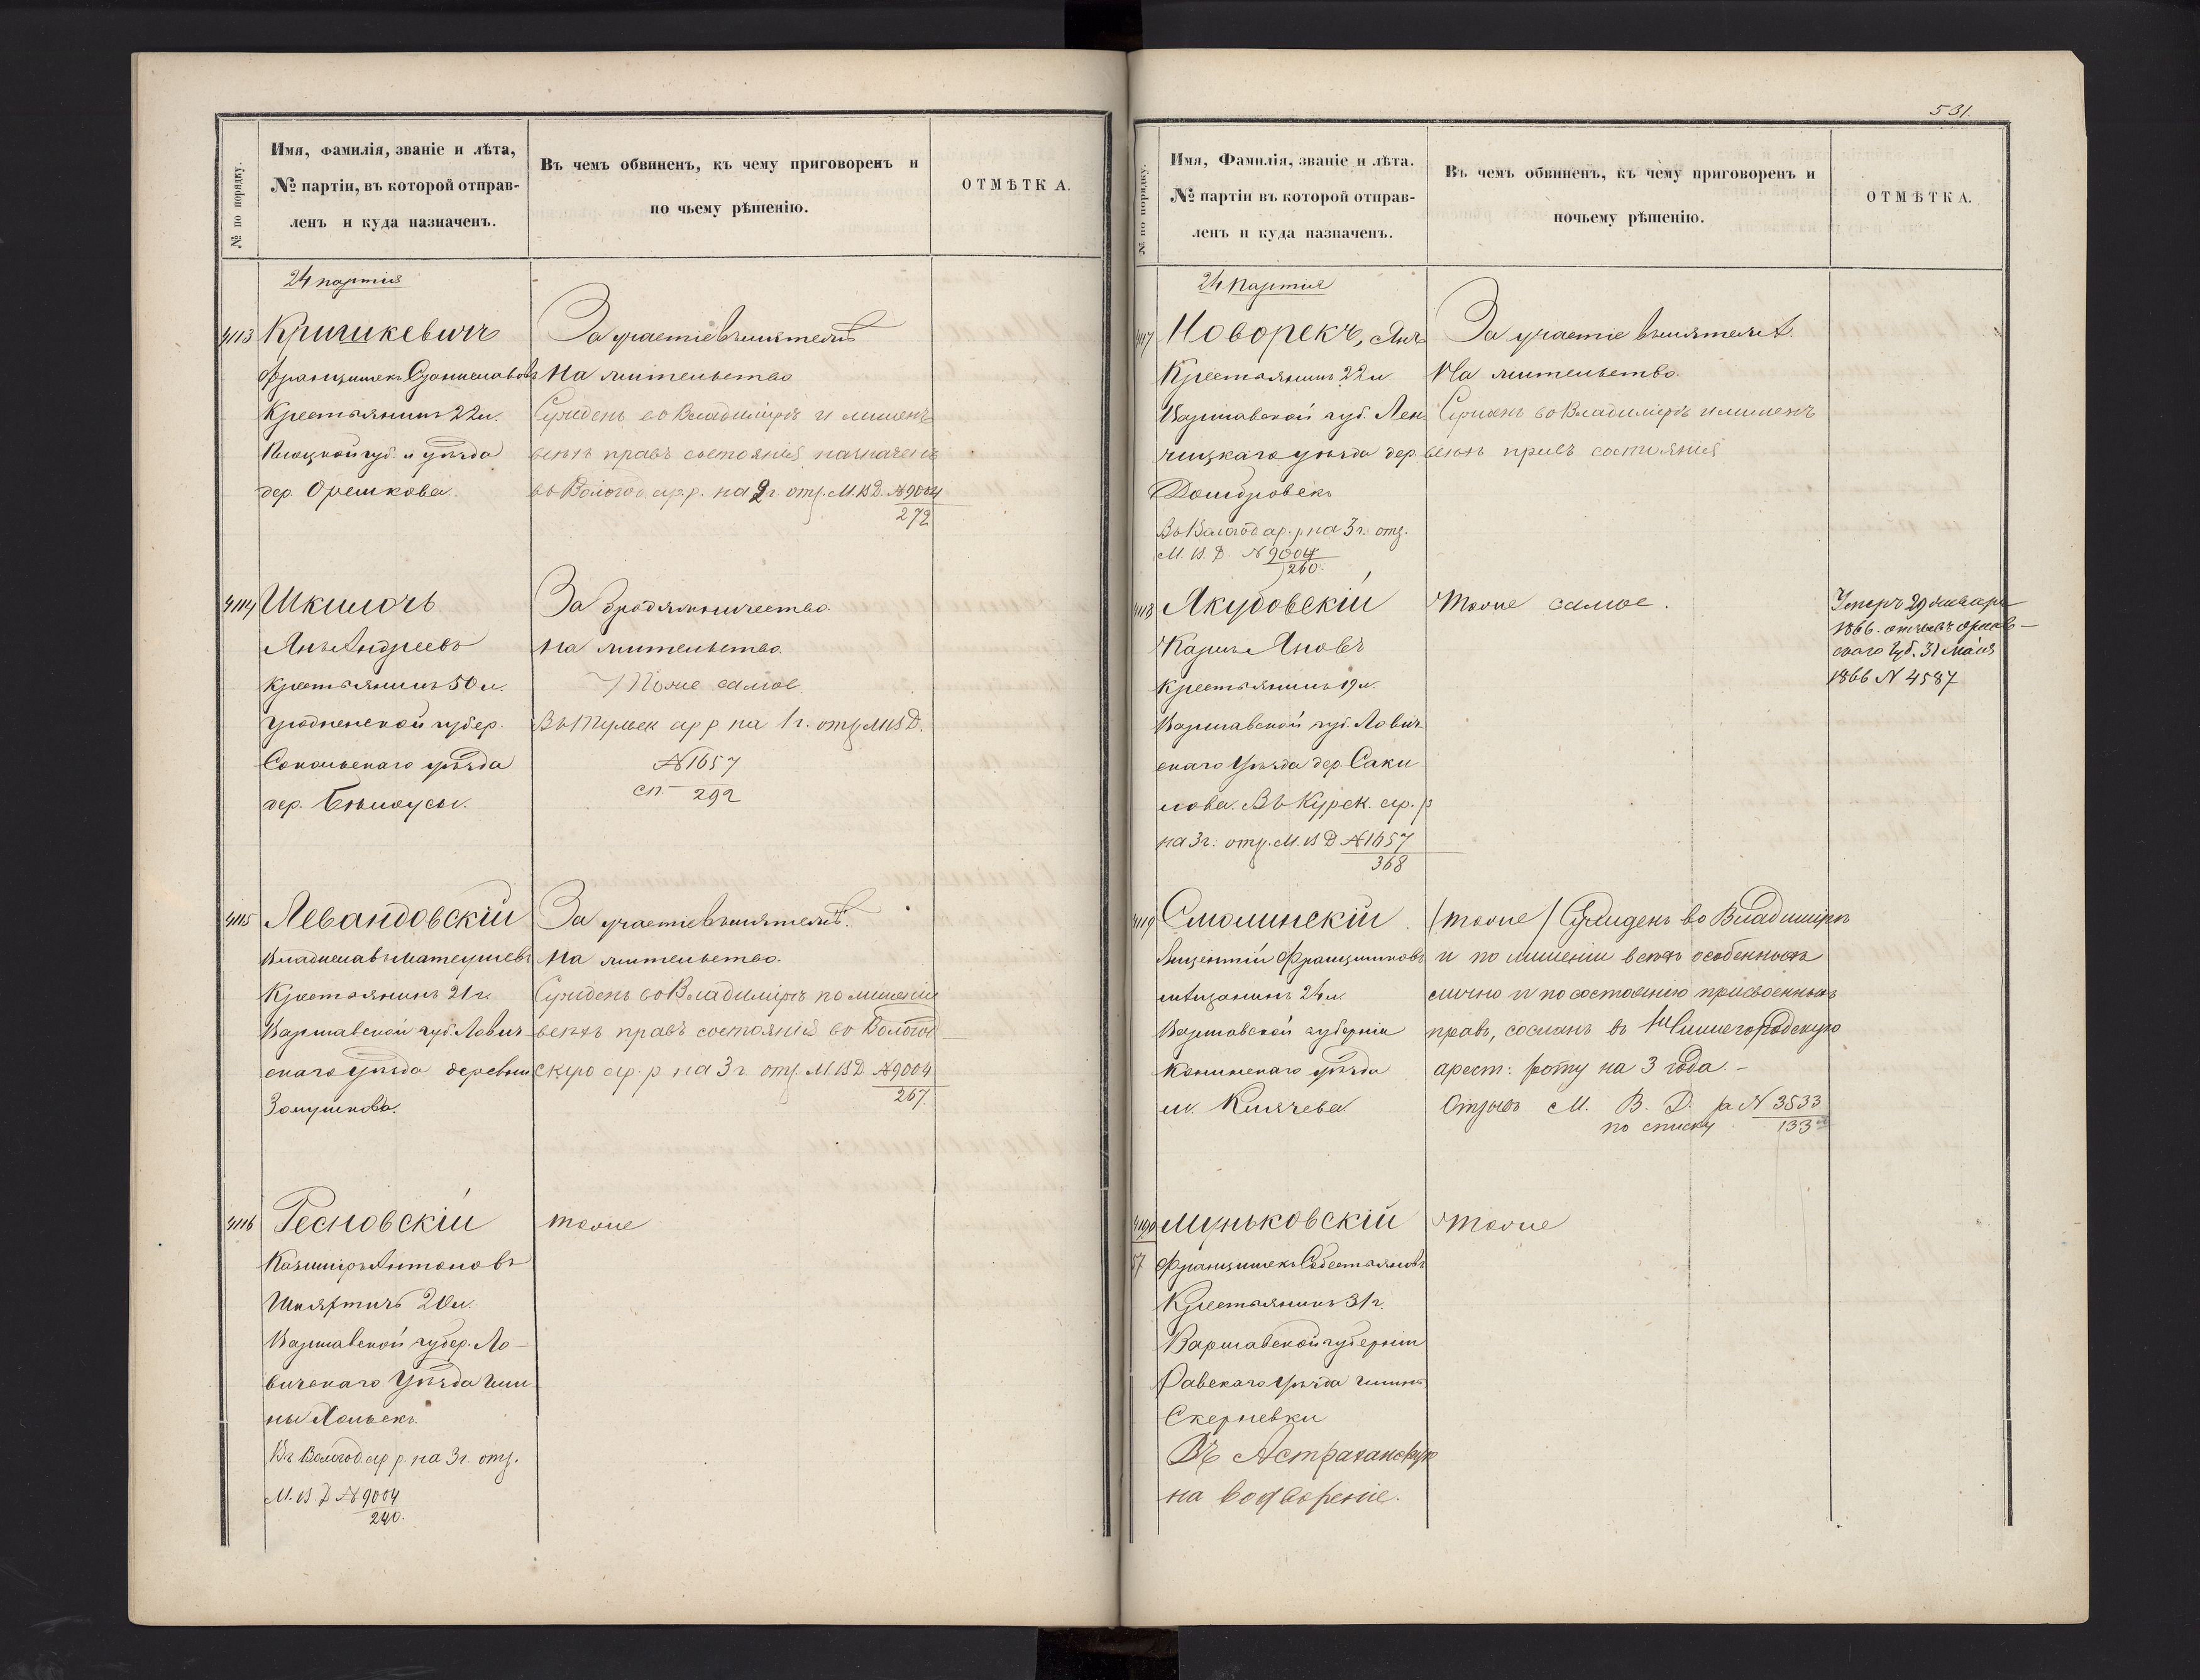 № по порядку.
Имя, фамилія, званіе и лѣта,
№ партіи, въ которой отправ-
ленъ и куда назначенъ.
Въ чемъ обвиненъ, къ чему приговоренъ и
по чьему рѣшенію.
ОТМѢТКА.
24 партія
4113 Кришкевичъ
Францишекъ Станиславовъ
Крестьянинъ 22 л.
Плоцкой губ. и уѣзда
дер. Орешкова.
За участіе въ мятежѣ
На жительство
Сужденъ во Владимірѣ и лишенъ
всѣхъ правъ состоянія назначенъ
въ Вологод. ар. р. на 2 г. отз. М. В. Д. № 9004
272
4114 Шкилочъ
Янъ Андреевъ
Крестьянинъ 50 л.
Гродненской губер.
Сокольскаго уѣзда
дер.
За бродяжничество.
На жительство.
Тоже самое.
Въ Тульск ар р на 1 г. отз МВД.
№ 1657
сп. 292
4115 Левандовскій
Владиславъ Матеушевъ
Крестьянинъ 21 г.
Варшавской губ. Лович-
скаго уѣзда деревни
За участіе въ мятежѣ.
На жительство.
Сужденъ во Владимірѣ по лишеніи
всѣхъ правъ состоянія во Вологод-
скую ар. р на 3 г отз. М. В Д № 9004
267.
4116 Гесновскій
Казиміръ Антоновъ
Шляхтичъ 20 л.
Варшавской губер. Ло-
вичскаго Уѣзда Гми
ны
Въ Вологод. ар р. на 3 г. отз.
М. В. Д № 9004
240.
тоже
531.
№ по порядку.
Имя, Фамилія, званіе и лѣта.
№ партіи въ которой отправ-
ленъ и куда назначенъ.
Въ чемъ обвиненъ, къ чему приговоренъ и
почьему рѣшенію.
ОТМѢТКА.
24 партія
4117 Новорекъ, Янъ
Крестьянинъ 22 л.
Варшавской губ. Лен-
чицкаго уѣзда дер.
Домбровекъ
Въ Вологод ар. р на 3 г. отз.
М. В. Д. № 9004
260.
За участіе въ мятежѣ.
На жительство.
Сужденъ во Владимірѣ и лишенъ
всѣхъ правъ состоянія
4118 Якубовскій
Кароль Яновъ
Крестьянинъ 19 л.
Варшавской губ. Лович-
скаго Уѣзда дер. Саки
лова. Въ Курск. ар. р
на 3 г. отз. М. В Д № 1657
368
Тоже самое.
Умеръ 29 Января
1866. отзывъ Орлов-
скаго Губ. 31 Мая
1866 № 4587
4119 Смолинскій
Францишковъ
мѣщанинъ 24 л.
Варшавской губерніи
Конинскаго уѣзда
м. Клечева.
(тоже) Сужденъ во Владимірѣ
и по лишеніи всѣхъ особенныхъ
лично и по состоянію присвоенныхъ
правъ, сосланъ въ Нижегородскую
арест: роту на 3 года. -
Отзывъ М. В. Д. за № 3533
по списку 133
4120 Муньковскій
57 Францишекъ Себестьяновъ
Крестьянинъ 31 г.
Варшавской губерніи
Равскаго Уѣзда Гмины
Скерневки
Въ Астраханскую
на водвореніе.
Тоже